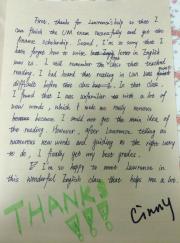 First, thanks for Lawrence's help so that I
can finish the UM exam successfully and get the
finance scholarship. Second, I'm so sorry that I
have forgot how to write letter in English
was is. I still remember the class that teached
reading, I had heard that reading in UM was most
difficult before the class. In that class,
I found that I was unfamiliar with a lot of
new words, which make me really nervous
because I could not get the main idea of
the reading. However, after Lawrence telling us
numerous new words and guiding us the right way
to do, I finally get my best grades.
I'm so happy to meet Lawrence in
this wonderful English class that helps me a lot.
THANKS
!!!
Cinny